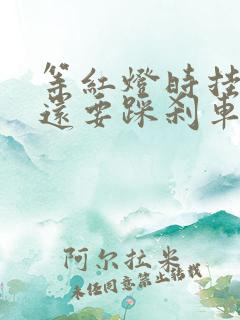 等紅燈時挂
還要踩剎車
阿尔拉米
未经同意禁止转载